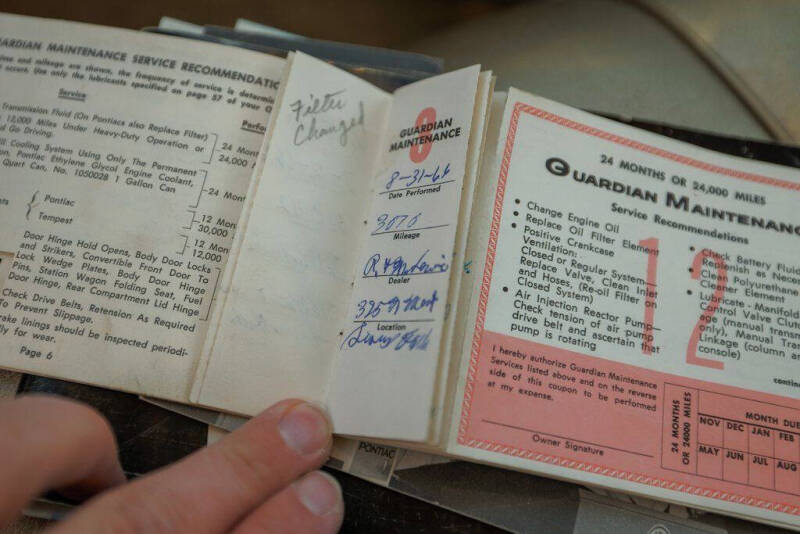 GUARDIAN MAINTENANCE SERVICE RECOMMENDATIO
time and mileage are shown, the frequency of service is determin
occurs. Use only the lubricants specified on page 57 of your
Service
Perfo
Transmission Fluid (On Pontiacs also Replace Filter)
12,000 Miles Under Heavy-Duty Operation or
Go Driving.
24 Mon
24,000
Cooling System Using Only The Permanent
Pontiac Ethylene Glycol Engine Coolant,
Quart Can, No. 1050028 1 Gallon Can
24 Mont
Pontiac
Tempest
12 Mon
30,000
12 Mon
12,000
Door Hinge Hold Opens, Body Door Locks
and Strikers, Convertible Front Door To
Lock Wedge Plates, Body Door Hinge
Pins, Station Wagon Folding Seat, Fuel
Door Hinge, Rear Compartment Lid Hinge
Check Drive Belts, Retension As Required
To Prevent Slippage.
Brake linings should be inspected periodi-
lly for wear.
Page 6
Filter
Changed
8
GUARDIAN
MAINTENANCE
8-31-66
Date Performed
3070
Mileage
Dealer
Location
PONTIAC
24 MONTHS OR 24,000 MILES
GUARDIAN MAINTENANC
Service Recommendations
12
• Change Engine Oil
• Replace Oil Filter Element
• Positive Crankcase
Ventilation:
Closed or Regular System—
Replace Valve, Clean Inlet
and Hoses, (Re-oil Filter on
Closed System)
• Air Injection Reactor Pump—
Check tension of air pump
drive belt and ascertain that
pump is rotating
• Check Battery Fluid
Replenish as Neces
• Clean Polyurethane
Cleaner Element
• Lubricate - Manifold
Control Valve Clut
age (manual transm
only), Manual Tran
Linkage (column an
console)
contin
I hereby authorize Guardian Maintenance
Services listed above and on the reverse
side of this coupon to be performed
at my expense.
Owner Signature
24 MONTHS
OR 24000 MILES
MONTH DUE
NOV DEC JAN FEB
MAY JUN JUL AUG